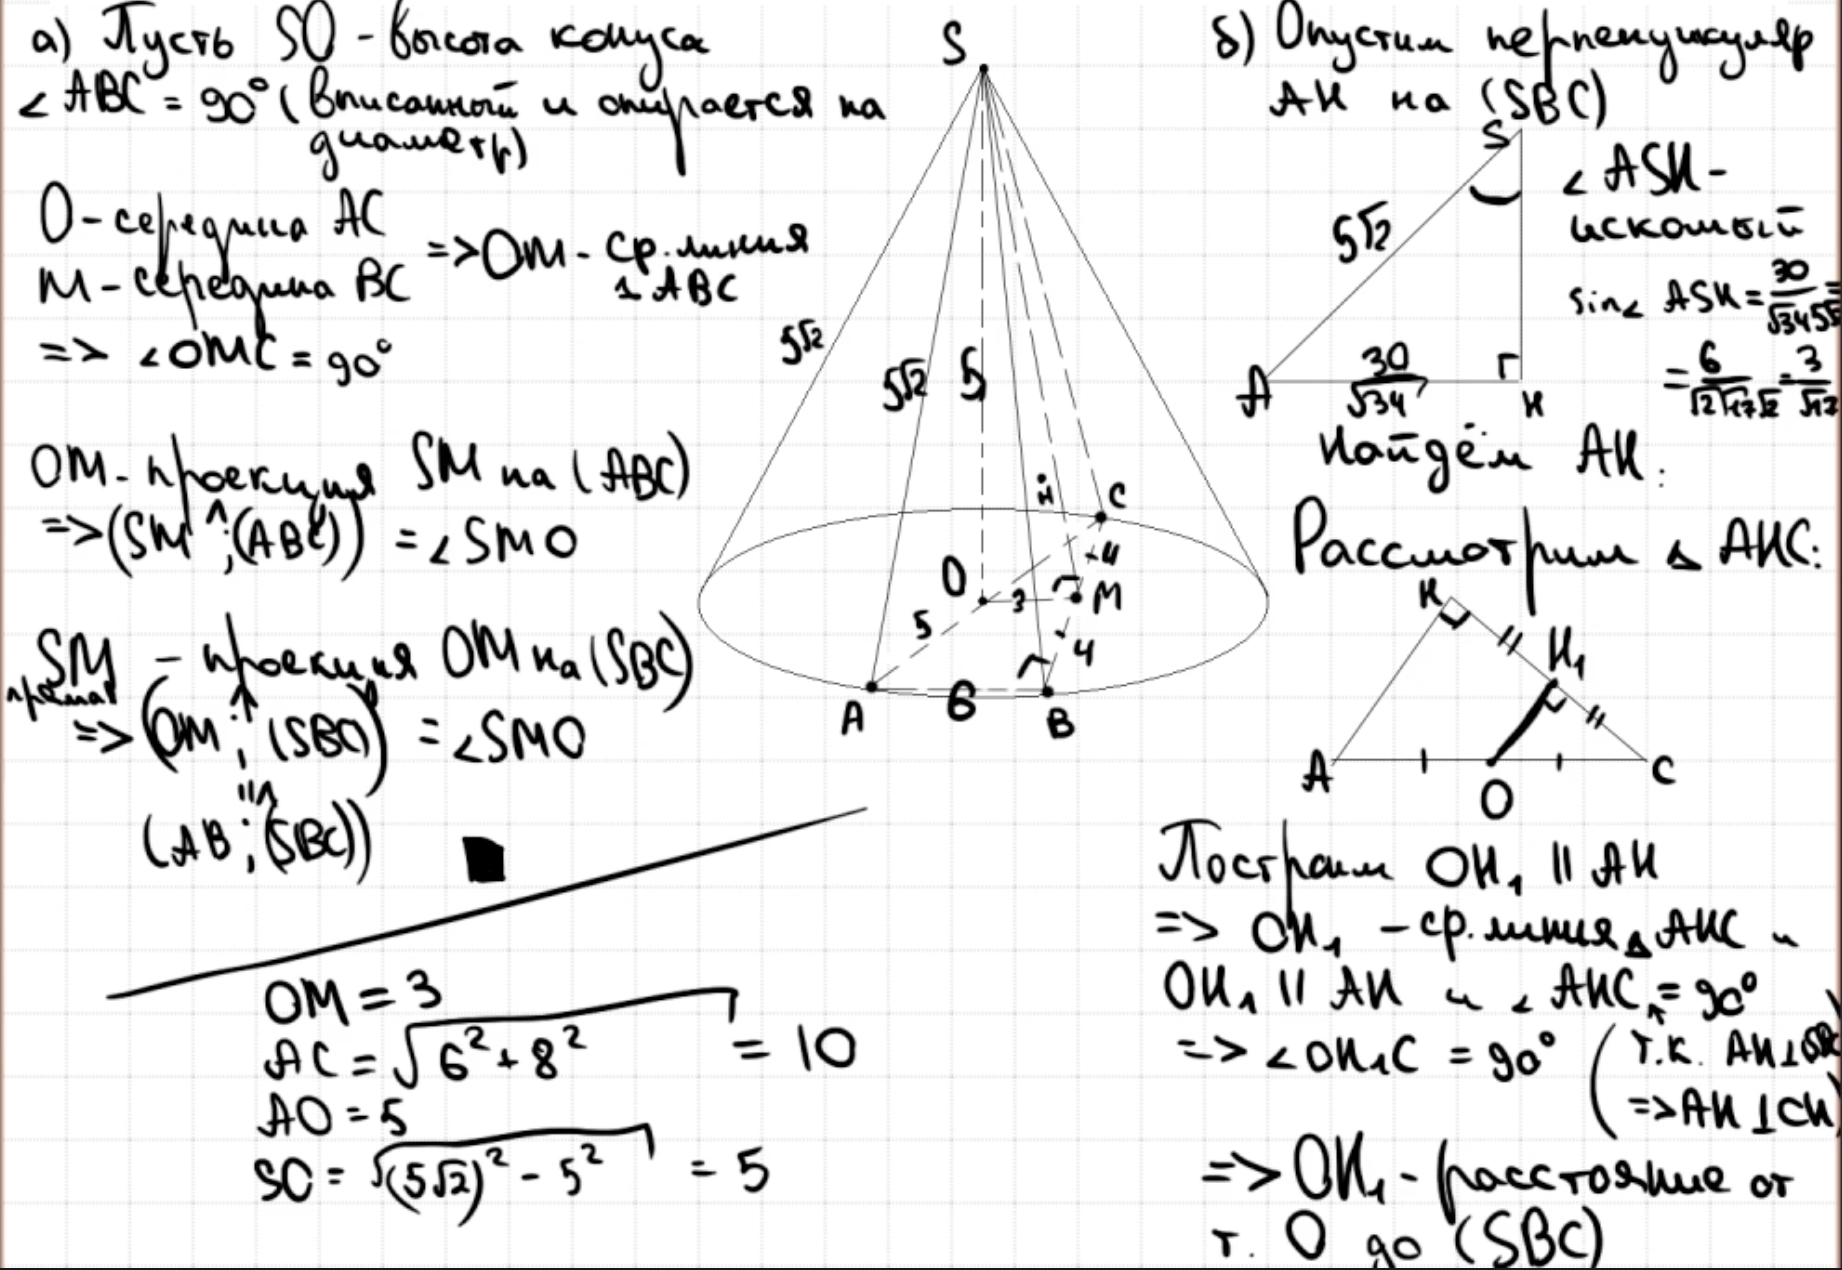 а) Пусть SO - высота конуса
∠ ABC = 90° (вписанный и опирается на
диаметр)
O - середина AC
M - середина BC
=> OM - ср. линия
△ ABC
=> ∠OMC = 90°
OM - проекция SM на (ABC)
=> (SM ^; (ABC)) = ∠SMO
SM - проекция OM на (SBC)
прямая
=> (OM ^; (SBC)) = ∠SMO
(AB ^; (SBC))
OM = 3
AC = √6² + 8² = 10
AO = 5
SO = √(5√2)² - 5² = 5
S
5√2
5√2
5
H
C
4
O
3
M
5
4
6
A
B
б) Опустим перпендикуляр
AH на (SBC)
S
∠ ASH -
искомый
5√2
sin∠ ASH = 30/√34 5√2 =
= 6/√2√17√2 = 3/√17
A
30/√34
H
Найдём AH:
Рассмотрим △ AHC:
H
H₁
A
O
C
Построим OH₁ || AH
=> OH₁ - ср. линия △ AHC и
OH₁ || AH и ∠ AHC = 90°
=> ∠OH₁C = 90°
(т.к. AH ⊥ SBC
=> AH ⊥ CH)
=> OH₁ - расстояние от
т. O до (SBC)